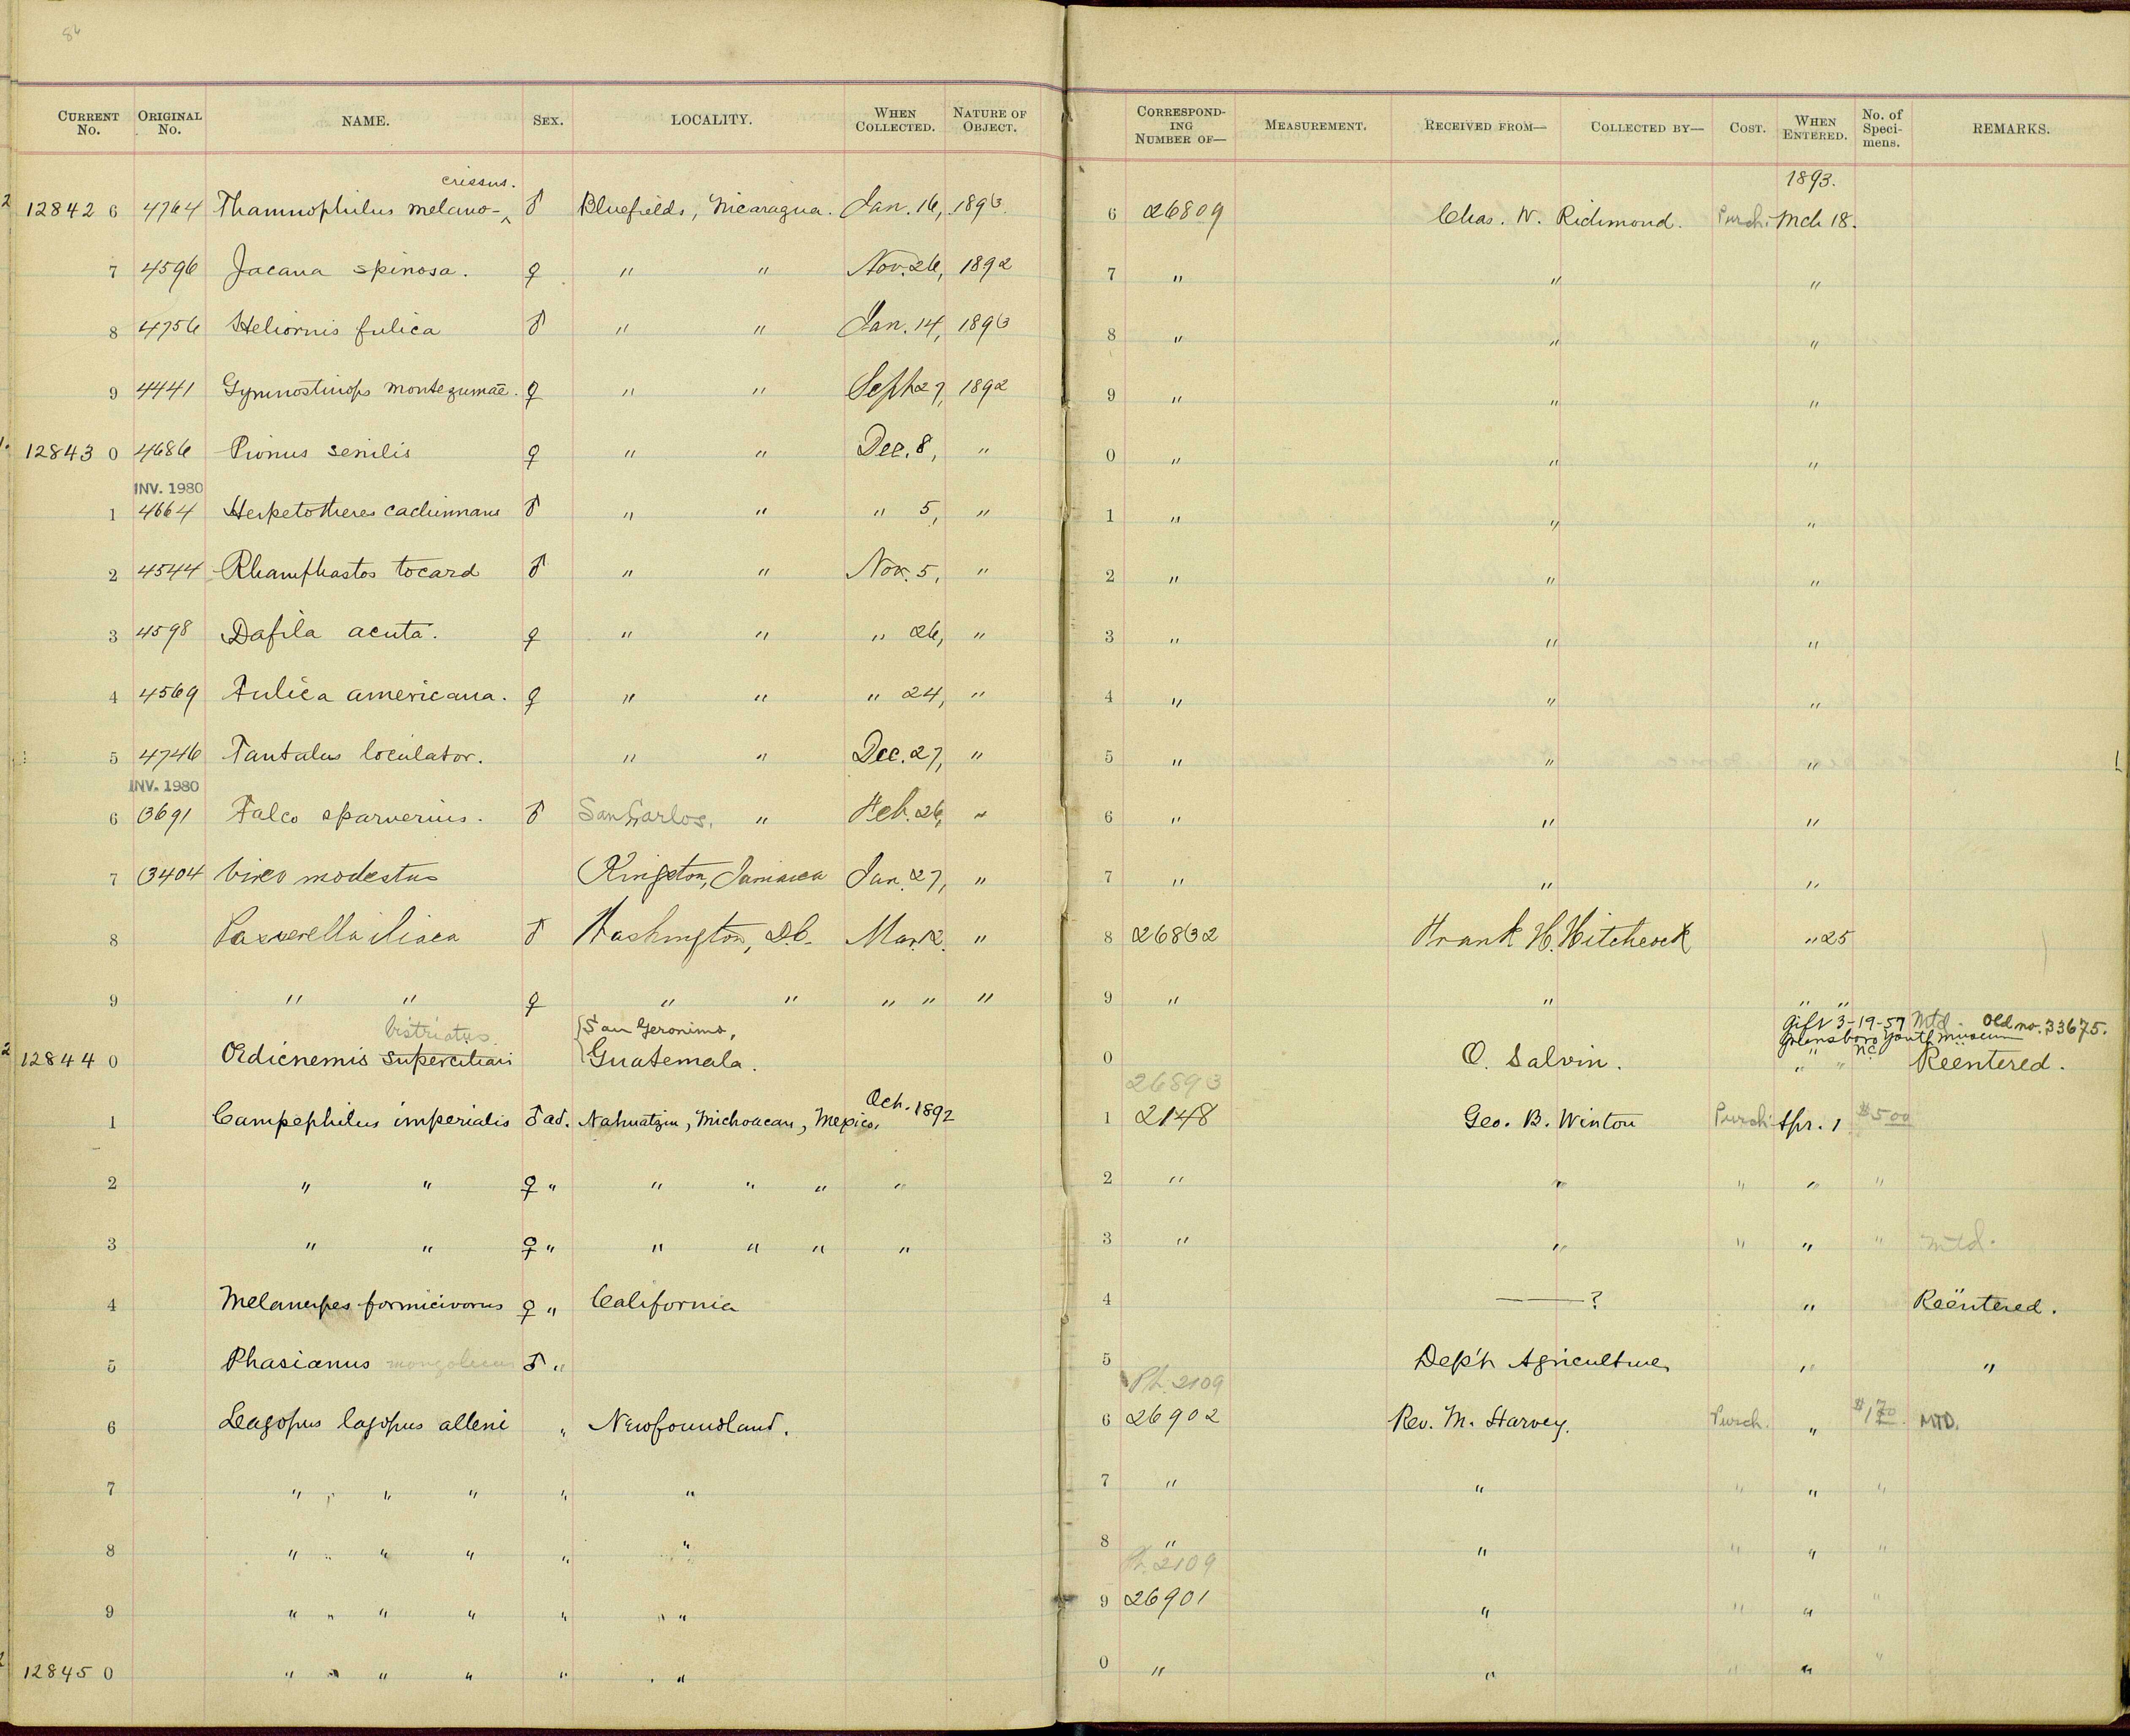 86
CURRENT No. ORIGINAL No. NAME. SEX. LOCALITY. WHEN COLLECTED. NATURE OF OBJECT. CORRESPOND-ING NUMBER OF— MEASUREMENT. RECEIVED FROM— COLLECTED BY— COST. WHEN ENTERED. No. of Speci-mens. REMARKS.
crissus. 1893.
2 12842 6 4764 Thamnophilus melano-^ ♂ Bluefields, Nicaragua. Jan. 16, 1893. 6 26809 Chas. W. Richmond. Purch. Mch 18.
7 4596 Jacana spinosa. ♀ " " Nov. 26, 1892 7 " " "
8 4756 Heliornis fulica ♂ " " Jan. 14, 1893 8 " " "
9 4441 Gymnostinops montezumae. ♀ " " Sept 27, 1892 9 " " "
1. 12843 0 4686 Pionus senilis ♀ " " Dec. 8, " 0 " " "
INV. 1980
1 4664 Herpetotheres cachinnans ♂ " " " 5, " 1 " " "
2 4544 Rhamphastos tocard ♂ " " Nov. 5, " 2 " " "
3 4598 Dafila acuta. ♀ " " " 26, " 3 " " "
4 4569 Fulica americana. ♀ " " " 24, " 4 " " "
5 4746 Tantalus loculator. " " Dec. 27, " 5 " " "
INV. 1980
6 3691 Falco sparverius. ♂ San Carlos, " Feb. 26, " 6 " " "
7 3404 Vireo modestus Kingston, Jamaica Jan. 27, " 7 " " "
8 Passerella iliaca ♂ Washington, D.C. Mar. 12. " 8 26832 Frank H. Hitchcock " 25
9 " " ♀ " " " " " 9 " " " "
bistriatus {San Geronimo, Gift 3-19-57 Mtd. Old no. 33675.
Greensboro Youth Museum NC
2 12844 0 Oedicnemis superciliaris Guatemala. 0 O. Salvin. " " Reëntered.
26893
1 Campephilus imperialis ♂ ad. Nahuatzin, Michoacan, Mexico. Oct. 1892 1 2148 Geo. B. Winton Purch. Apr. 1 $5.00
2 " " ♀ " " " " " 2 " " " " "
3 " " ♀ " " " " " 3 " " " " " Mtd.
4 Melanerpes formicivorus ♀ " California 4 ——? " Reëntered.
5 Phasianus mongolicus ♂ " 5 Dep't Agriculture " "
Ph. 2109
6 Leagopus lagopus alleni " Newfoundland. 6 26902 Rev. M. Harvey. Purch. " $1.70 MTD.
7 " " " " " 7 " " " " "
8 " " " " " " 8 " " " " "
Ph. 2109
9 " " " " " " 9 26901 " " " "
12845 0 " " " " " " 0 " " " " "